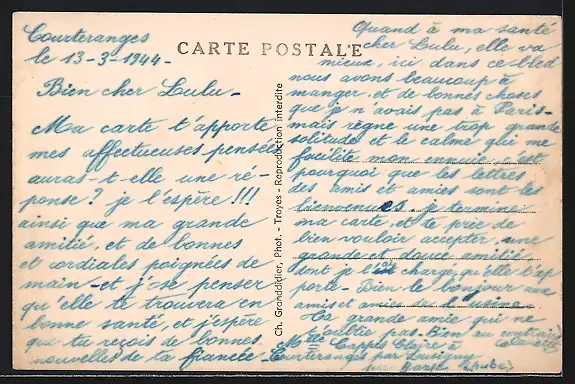 Courteranges
le 13-3-1944-
CARTE POSTALE
Bien cher Lulu-
Ma carte t'apporte
mes affectueuses pensées
auras-t-elle une ré-
ponse? je l'espère!!!
ainsi que ma grande
amitié, et de bonnes
et cordiales poignées de
main-et j'ose penser
qu'elle te trouvera en
bonne santé, et j'espère
que tu reçois de bonnes
nouvelles de ta fiancée-
Ch. Granddidier, Phot. - Troyes - Reproduction interdite
Quand à ma santé
cher Lulu, elle va
mieux, ici dans ce bled
nous avons beaucoup à
manger, et de bonnes choses
que je n'avais pas à Paris-
mais règne une trop grande
solitude et le calme qui me
facilite mon ennuie c'est
pourquoi que les lettres
des amis et amies sont les
bienvenues. je termine
ma carte, et te prie de
bien vouloir accepter une
grande et douce amitié
dont je charge qu'elle t'ap
porte- Bien le bonjour aux
amis et amies de l'usine-
Ta grande amie qui ne
t'oublie pas-Bien au contraire
Melle Cappés Claire à
Courteranges par Lusigny
sur Barse (Aube)